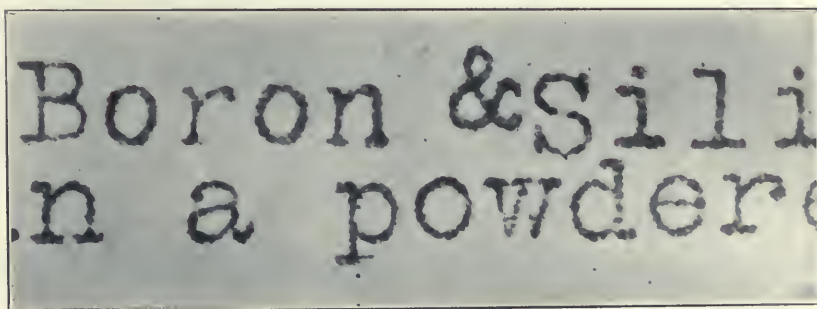 Boron &Sili
n a powdere